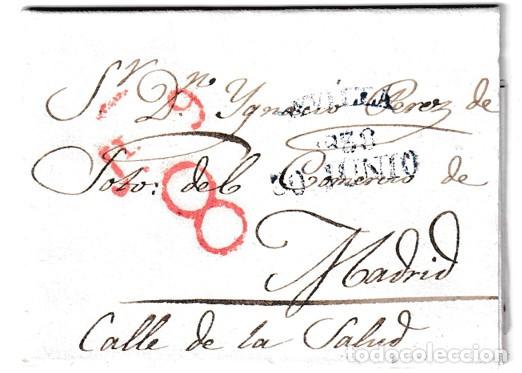 Sr. Dn. Ygnacio Perez de
Soto: del Comercio de
Madrid
Calle de la Salud
838
30 JUNIO
8
todocoleccion.net